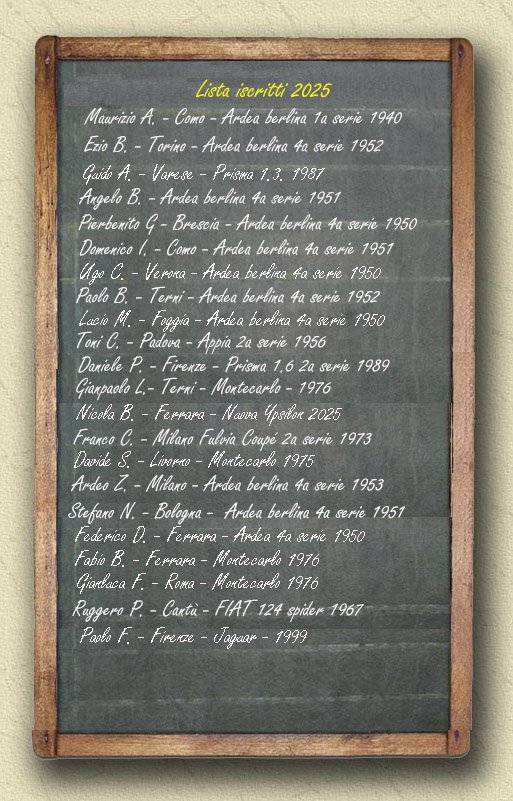 Lista iscritti 2025
Maurizio A. - Como - Ardea berlina 1a serie 1940
Ezio B. - Torino - Ardea berlina 4a serie 1952
Guido A. - Varese - Prisma 1.3. 1987
Angelo B. - Ardea berlina 4a serie 1951
Pierbenito G - Brescia - Ardea berlina 4a serie 1950
Domenico I. - Como - Ardea berlina 4a serie 1951
Ugo C. - Verona - Ardea berlina 4a serie 1950
Paolo B. - Terni - Ardea berlina 4a serie 1952
Lucio M. - Foggia - Ardea berlina 4a serie 1950
Toni C. - Padova - Appia 2a serie 1956
Daniele P. - Firenze - Prisma 1.6 2a serie 1989
Gianpaolo L.- Terni - Montecarlo - 1976
Nicola B. - Ferrara - Nuova Ypsilon 2025
Franco C. - Milano Fulvia Coupé 2a serie 1973
Davide S. - Livorno - Montecarlo 1975
Ardeo Z. - Milano - Ardea berlina 4a serie 1953
Stefano N. - Bologna - Ardea berlina 4a serie 1951
Federico D. - Ferrara - Ardea 4a serie 1950
Fabio B. - Ferrara - Montecarlo 1976
Gianluca F. - Roma - Montecarlo 1976
Ruggero P. - Cantù - FIAT 124 spider 1967
Paolo F. - Firenze - Jaguar - 1999